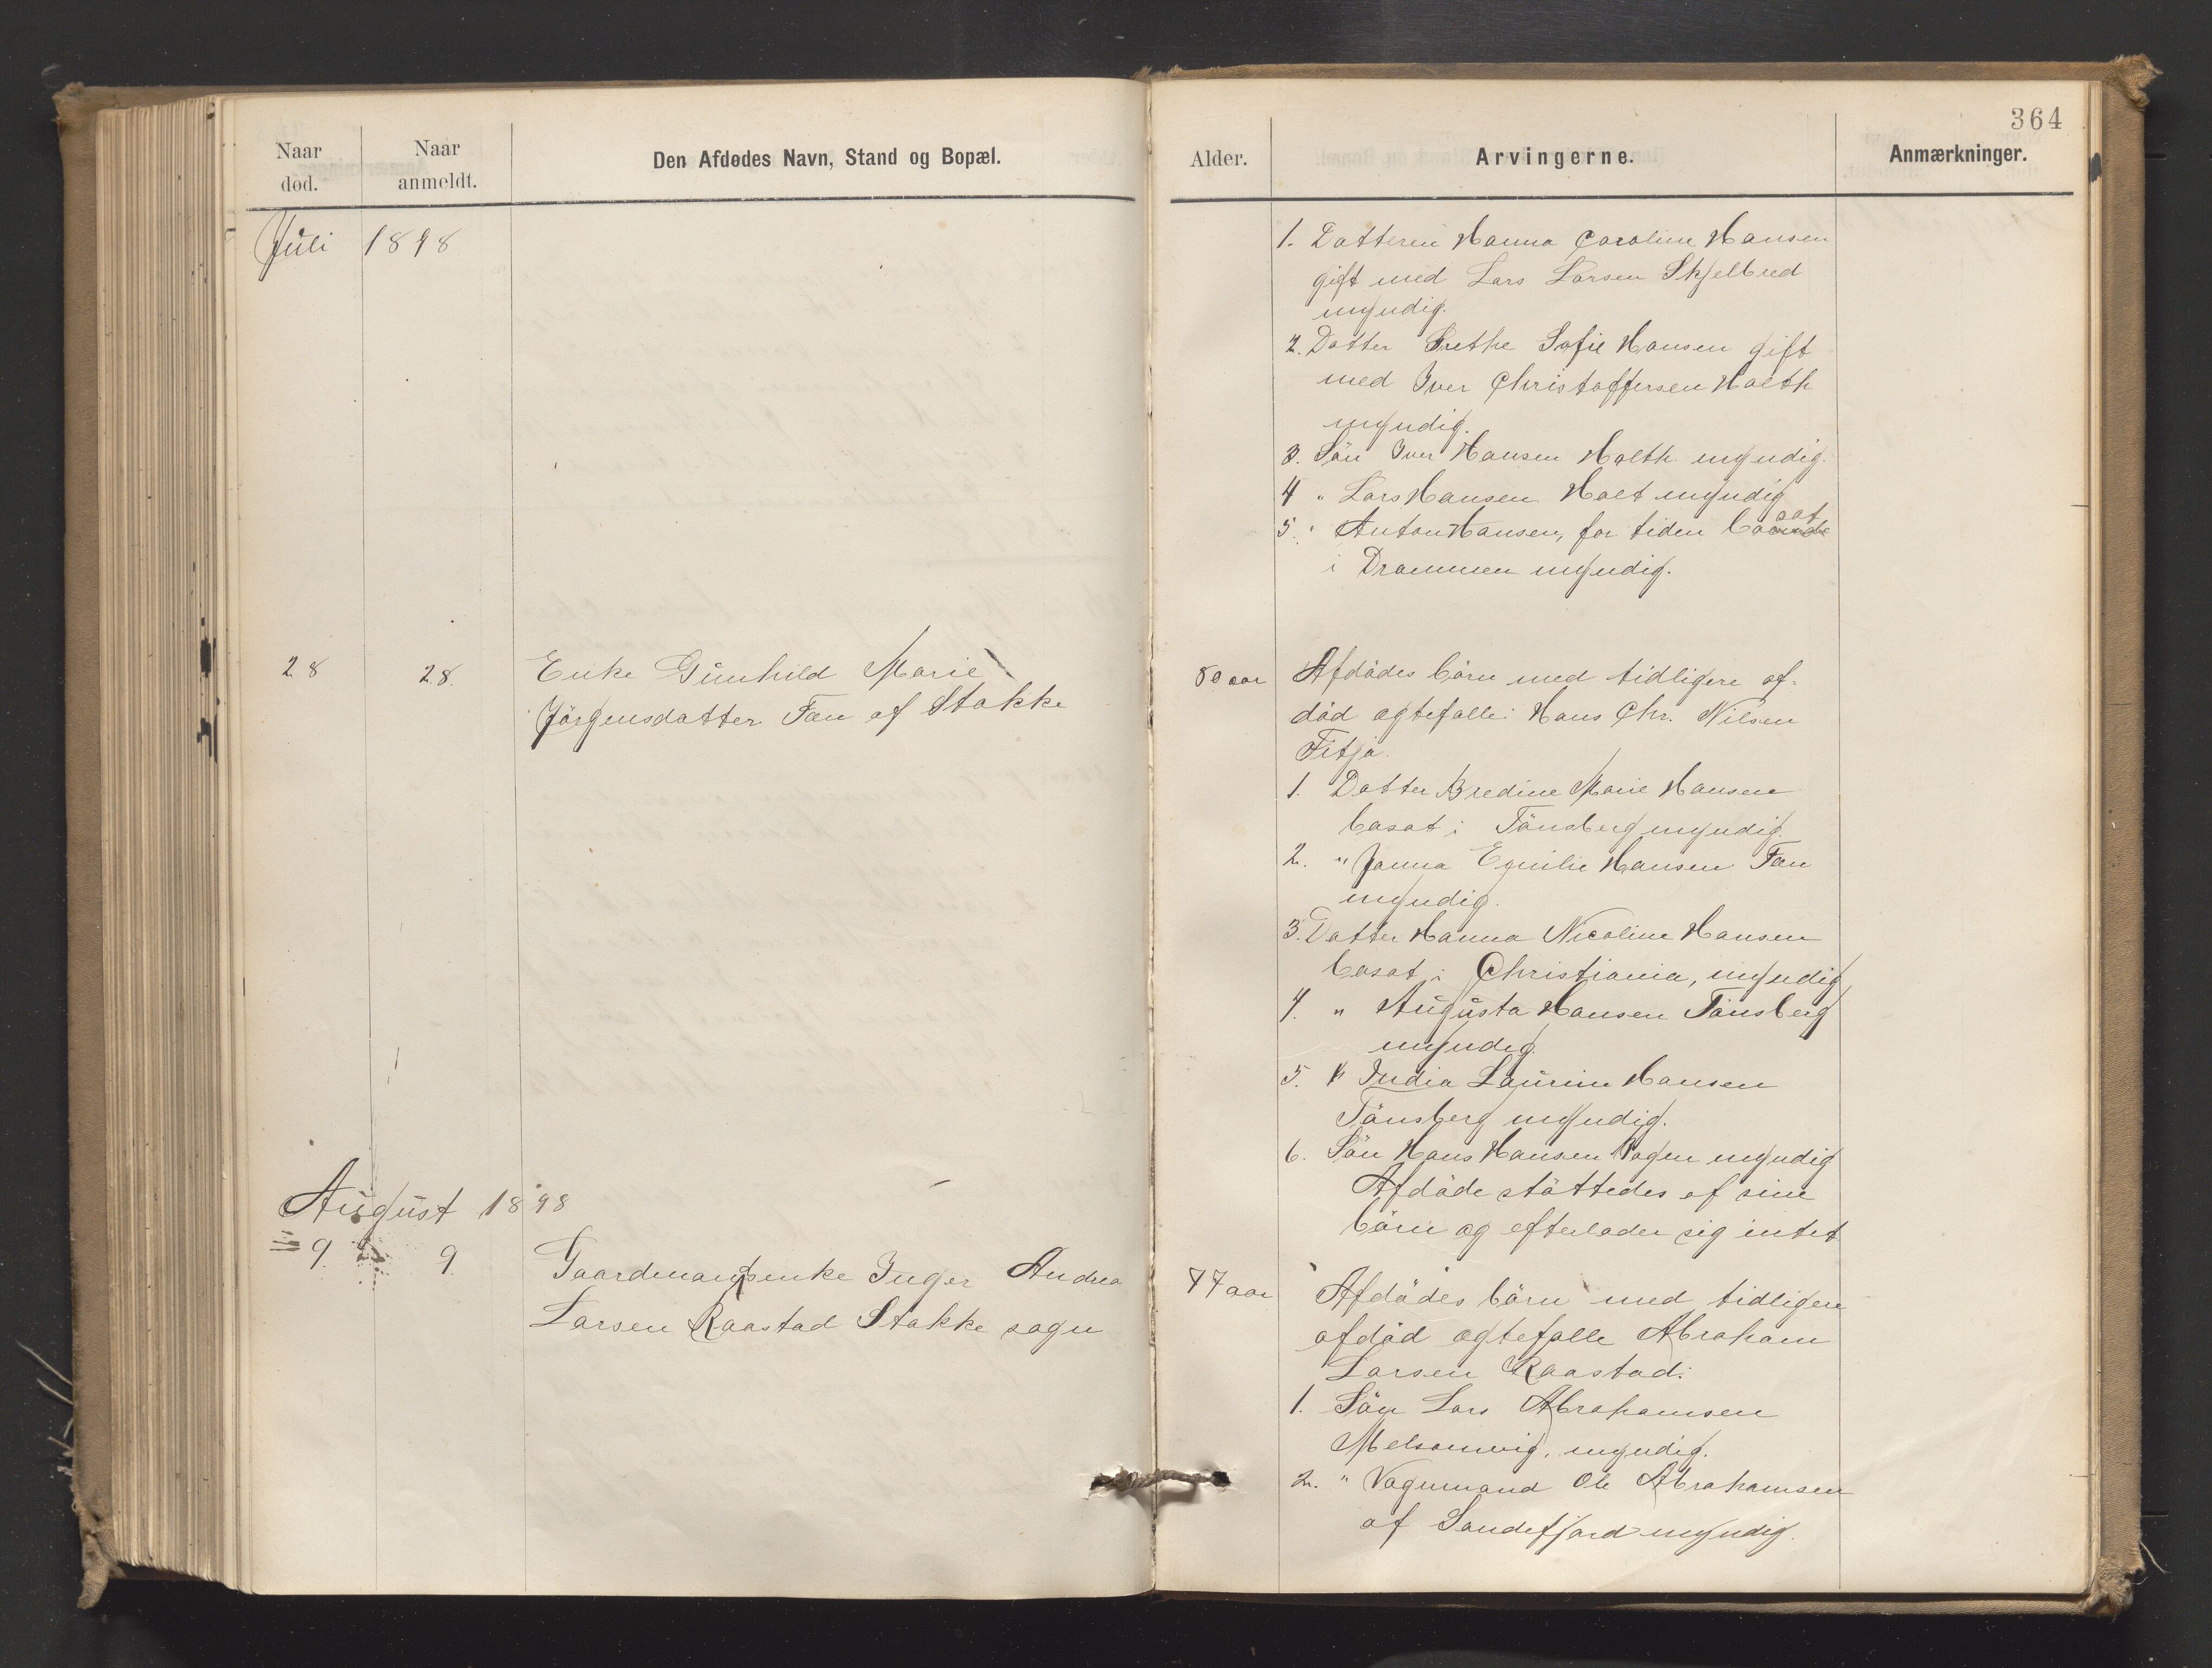 364
Naar død.
Naar anmeldt.
Den Afdødes Navn, Stand og Bopæl.
Alder.
Arvingerne.
Anmærkninger.
Juli 1898
1. Datteren Hanna Caroline Hansen
gift med Lars Larsen Skjelbred
myndig.
2. Datter Grethe Sofie Hansen gift
med Iver Christoffersen Holth
myndig.
3. Sön Iver Hansen Holth myndig.
4 " Lars Hansen Holt myndig
5. " Anton Hansen, for tiden bosat
i Drammen myndig.
28
28.
Enke Gunhild Marie
Jörgensdatter Fæn af Stokke
80 aar
Afdödes börn med tidligere af-
död ægtefælle: Hans Chr. Nilsen
Fitja.
1. Datter Bredine Marie Hansen
bosat i Tönsberg myndig.
2. " Janna Emilie Hansen Fæn
myndig.
3. Datter Hanna Nicoline Hansen
bosat i Christiania, myndig
4. " Augusta Hansen Tönsberg
myndig.
5. " India Laurine Hansen
Tönsberg myndig.
6. Sön Hans Hansen myndig
Afdöde stöttedes af sine
börn og efterlader sig intet
August 1898
9.
9.
Gaardmandsenke Inger Andrea
Larsen Raastad Stokke sogn
77 aar
Afdödes börn med tidligere
afdöd ægtefælle Abraham
Larsen Raastad:
1. Sön Lars Abrahamsen
Melsomvig, myndig.
2. " Vognmand Ole Abrahamsen
af Sandefjord myndig.